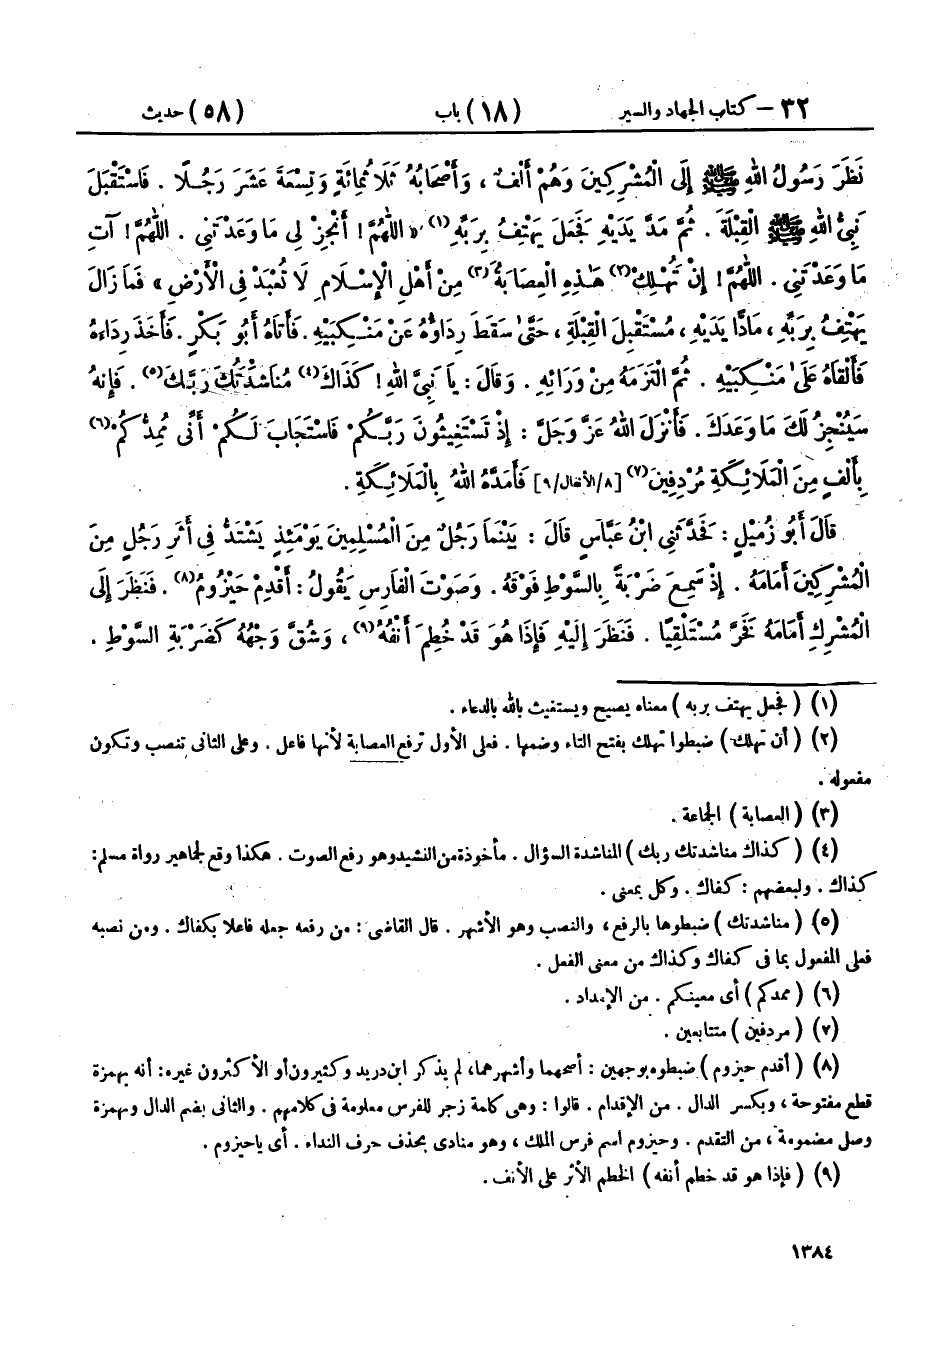 ٣٢ – كتاب الجهاد والسير (١٨) باب (٥٨) حديث
نَظَرَ رَسُولُ اللهِ ﷺ إِلَى الْمُشْرِكِينَ وَهُمْ أَلْفٌ ، وَأَصْحَابُهُ ثَلَاثُمِائَةٍ وَتِسْعَةَ عَشَرَ رَجُلًا . فَاسْتَقْبَلَ
نَبِيُّ اللهِ ﷺ الْقِبْلَةَ . ثُمَّ مَدَّ يَدَيْهِ فَجَعَلَ يَهْتِفُ بِرَبِّهِ(١) « اللّٰهُمَّ ! أَنْجِزْ لِي مَا وَعَدْتَنِي . اللّٰهُمَّ ! آتِ
مَا وَعَدْتَنِي . اللّٰهُمَّ ! إِنْ تُهْلِكْ(٢) هَٰذِهِ الْعِصَابَةَ(٣) مِنْ أَهْلِ الْإِسْلَامِ لَا تُعْبَدْ فِي الْأَرْضِ » فَمَا زَالَ
يَهْتِفُ بِرَبِّهِ ، مَادًّا يَدَيْهِ ، مُسْتَقْبِلَ الْقِبْلَةِ ، حَتَّىٰ سَقَطَ رِدَاؤُهُ عَنْ مَنْكِبَيْهِ . فَأَتَاهُ أَبُو بَكْرٍ . فَأَخَذَ رِدَاءَهُ
فَأَلْقَاهُ عَلَىٰ مَنْكِبَيْهِ . ثُمَّ الْتَزَمَهُ مِنْ وَرَائِهِ . وَقَالَ : يَا نَبِيَّ اللهِ ! كَذَاكَ(٤) مُنَاشَدَتُكَ رَبَّكَ(٥) . فَإِنَّهُ
سَيُنْجِزُ لَكَ مَا وَعَدَكَ . فَأَنْزَلَ اللهُ عَزَّ وَجَلَّ : إِذْ تَسْتَغِيثُونَ رَبَّكُمْ فَاسْتَجَابَ لَكُمْ أَنِّي مُمِدُّكُمْ(٦)
بِأَلْفٍ مِنَ الْمَلَائِكَةِ مُرْدِفِينَ(٧) [٨/الأنفال/٩] فَأَمَدَّهُ اللهُ بِالْمَلَائِكَةِ .
قَالَ أَبُو زُمَيْلٍ : فَحَدَّثَنِي ابْنُ عَبَّاسٍ قَالَ : بَيْنَمَا رَجُلٌ مِنَ الْمُسْلِمِينَ يَوْمَئِذٍ يَشْتَدُّ فِي أَثَرِ رَجُلٍ مِنَ
الْمُشْرِكِينَ أَمَامَهُ . إِذْ سَمِعَ ضَرْبَةً بِالسَّوْطِ فَوْقَهُ . وَصَوْتَ الْفَارِسِ يَقُولُ : أَقْدِمْ حَيْزُومُ(٨) . فَنَظَرَ إِلَى
الْمُشْرِكِ أَمَامَهُ فَخَرَّ مُسْتَلْقِيًا . فَنَظَرَ إِلَيْهِ فَإِذَا هُوَ قَدْ خُطِمَ أَنْفُهُ(٩) ، وَشُقَّ وَجْهُهُ كَضَرْبَةِ السَّوْطِ .
(١) (فجعل يهتف بربه) معناه يصيح ويستغيث بالله بالدعاء .
(٢) (أن تهلك) ضبطوا تهلك بفتح التاء وضمها . فعلى الأول ترفع العصابة لأنها فاعل . وعلى الثانى تنصب وتكون
مفعوله .
(٣) (العصابة) الجماعة .
(٤) (كذاك مناشدتك ربك) المناشدة السؤال . مأخوذة من النشيد وهو رفع الصوت . هكذا وقع لجماهير رواة مسلم :
كذاك . ولبعضهم : كفاك . وكل بمعنى .
(٥) (مناشدتك) ضبطوها بالرفع ، والنصب وهو الأشهر . قال القاضى : من رفعه جعله فاعلا بكفاك . ومن نصبه
فعلى المفعول بما فى كفاك وكذاك من معنى الفعل .
(٦) (ممدكم) أى معينكم . من الإمداد .
(٧) (مردفين) متتابعين .
(٨) (أقدم حيزوم) ضبطوه بوجهين : أصحهما وأشهرهما ، لم يذكر ابن دريد وكثيرون أو الأكثرون غيره : أنه بهمزة
قطع مفتوحة ، وبكسر الدال . من الإقدام . قالوا : وهى كلمة زجر للفرس معلومة فى كلامهم . والثانى بضم الدال وبهمزة
وصل مضمومة ، من التقدم . وحيزوم اسم فرس الملك ، وهو منادى بحذف حرف النداء . أى ياحيزوم .
(٩) (فإذا هو قد خطم أنفه) الخطم الأثر على الأنف .
١٣٨٤